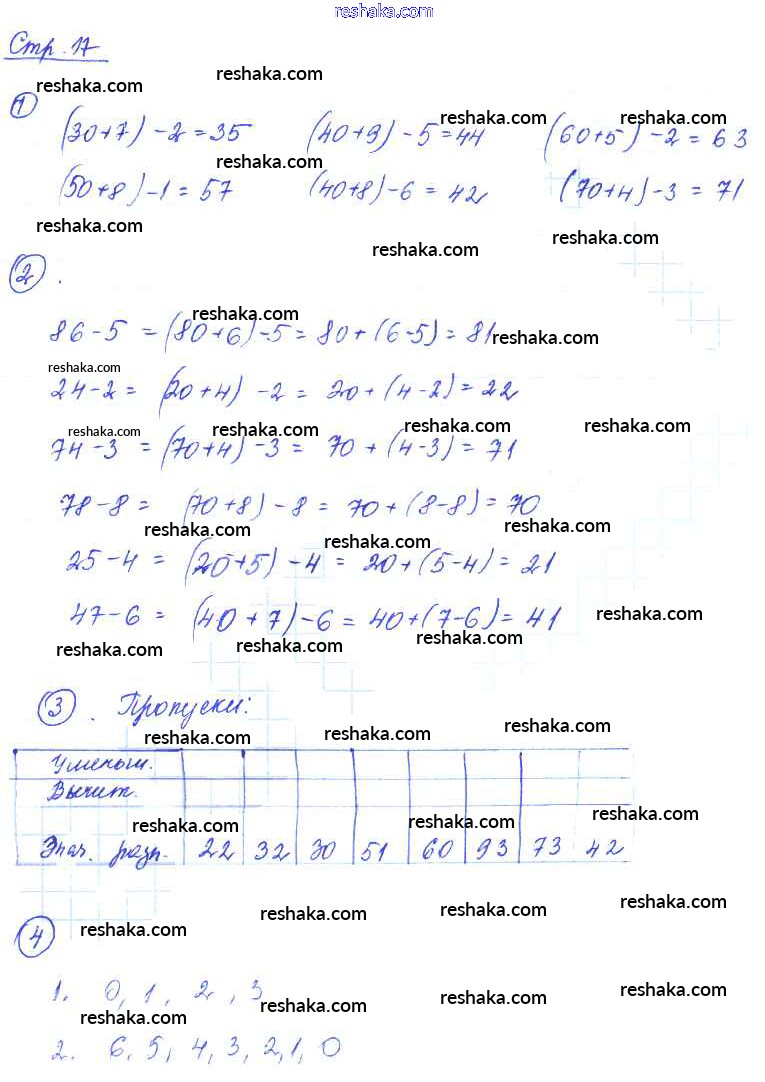 reshaka.com
Стр. 17
reshaka.com reshaka.com
1
reshaka.com reshaka.com
(30+7) -2 =35 (40+9) -5 =44 (60+5) -2 = 63
reshaka.com
(50+8) -1 = 57 (40+8) -6 = 42 (70+4) -3 = 71
reshaka.com reshaka.com reshaka.com
2.
reshaka.com
86-5 = (80+6)-5 = 80+(6-5) = 81 reshaka.com
reshaka.com
24-2 = (20+4) -2 = 20+(4-2) = 22
reshaka.com reshaka.com reshaka.com reshaka.com
74-3 = (70+4) -3 = 70+(4-3) = 71
78-8 = (70+8) -8 = 70+(8-8) = 70
reshaka.com reshaka.com reshaka.com
25-4 = (20+5) -4 = 20+(5-4) = 21
47-6 = (40+7) -6 = 40+(7-6) = 41 reshaka.com
reshaka.com reshaka.com
3. Пропуски:
reshaka.com reshaka.com reshaka.com
Уменьш.
Вычит.
reshaka.com reshaka.com reshaka.com
Знач. разн. 22 32 30 51 60 93 73 42
4
reshaka.com reshaka.com reshaka.com reshaka.com
1. 0, 1, 2, 3
reshaka.com reshaka.com reshaka.com reshaka.com
2. 6, 5, 4, 3, 2, 1, 0